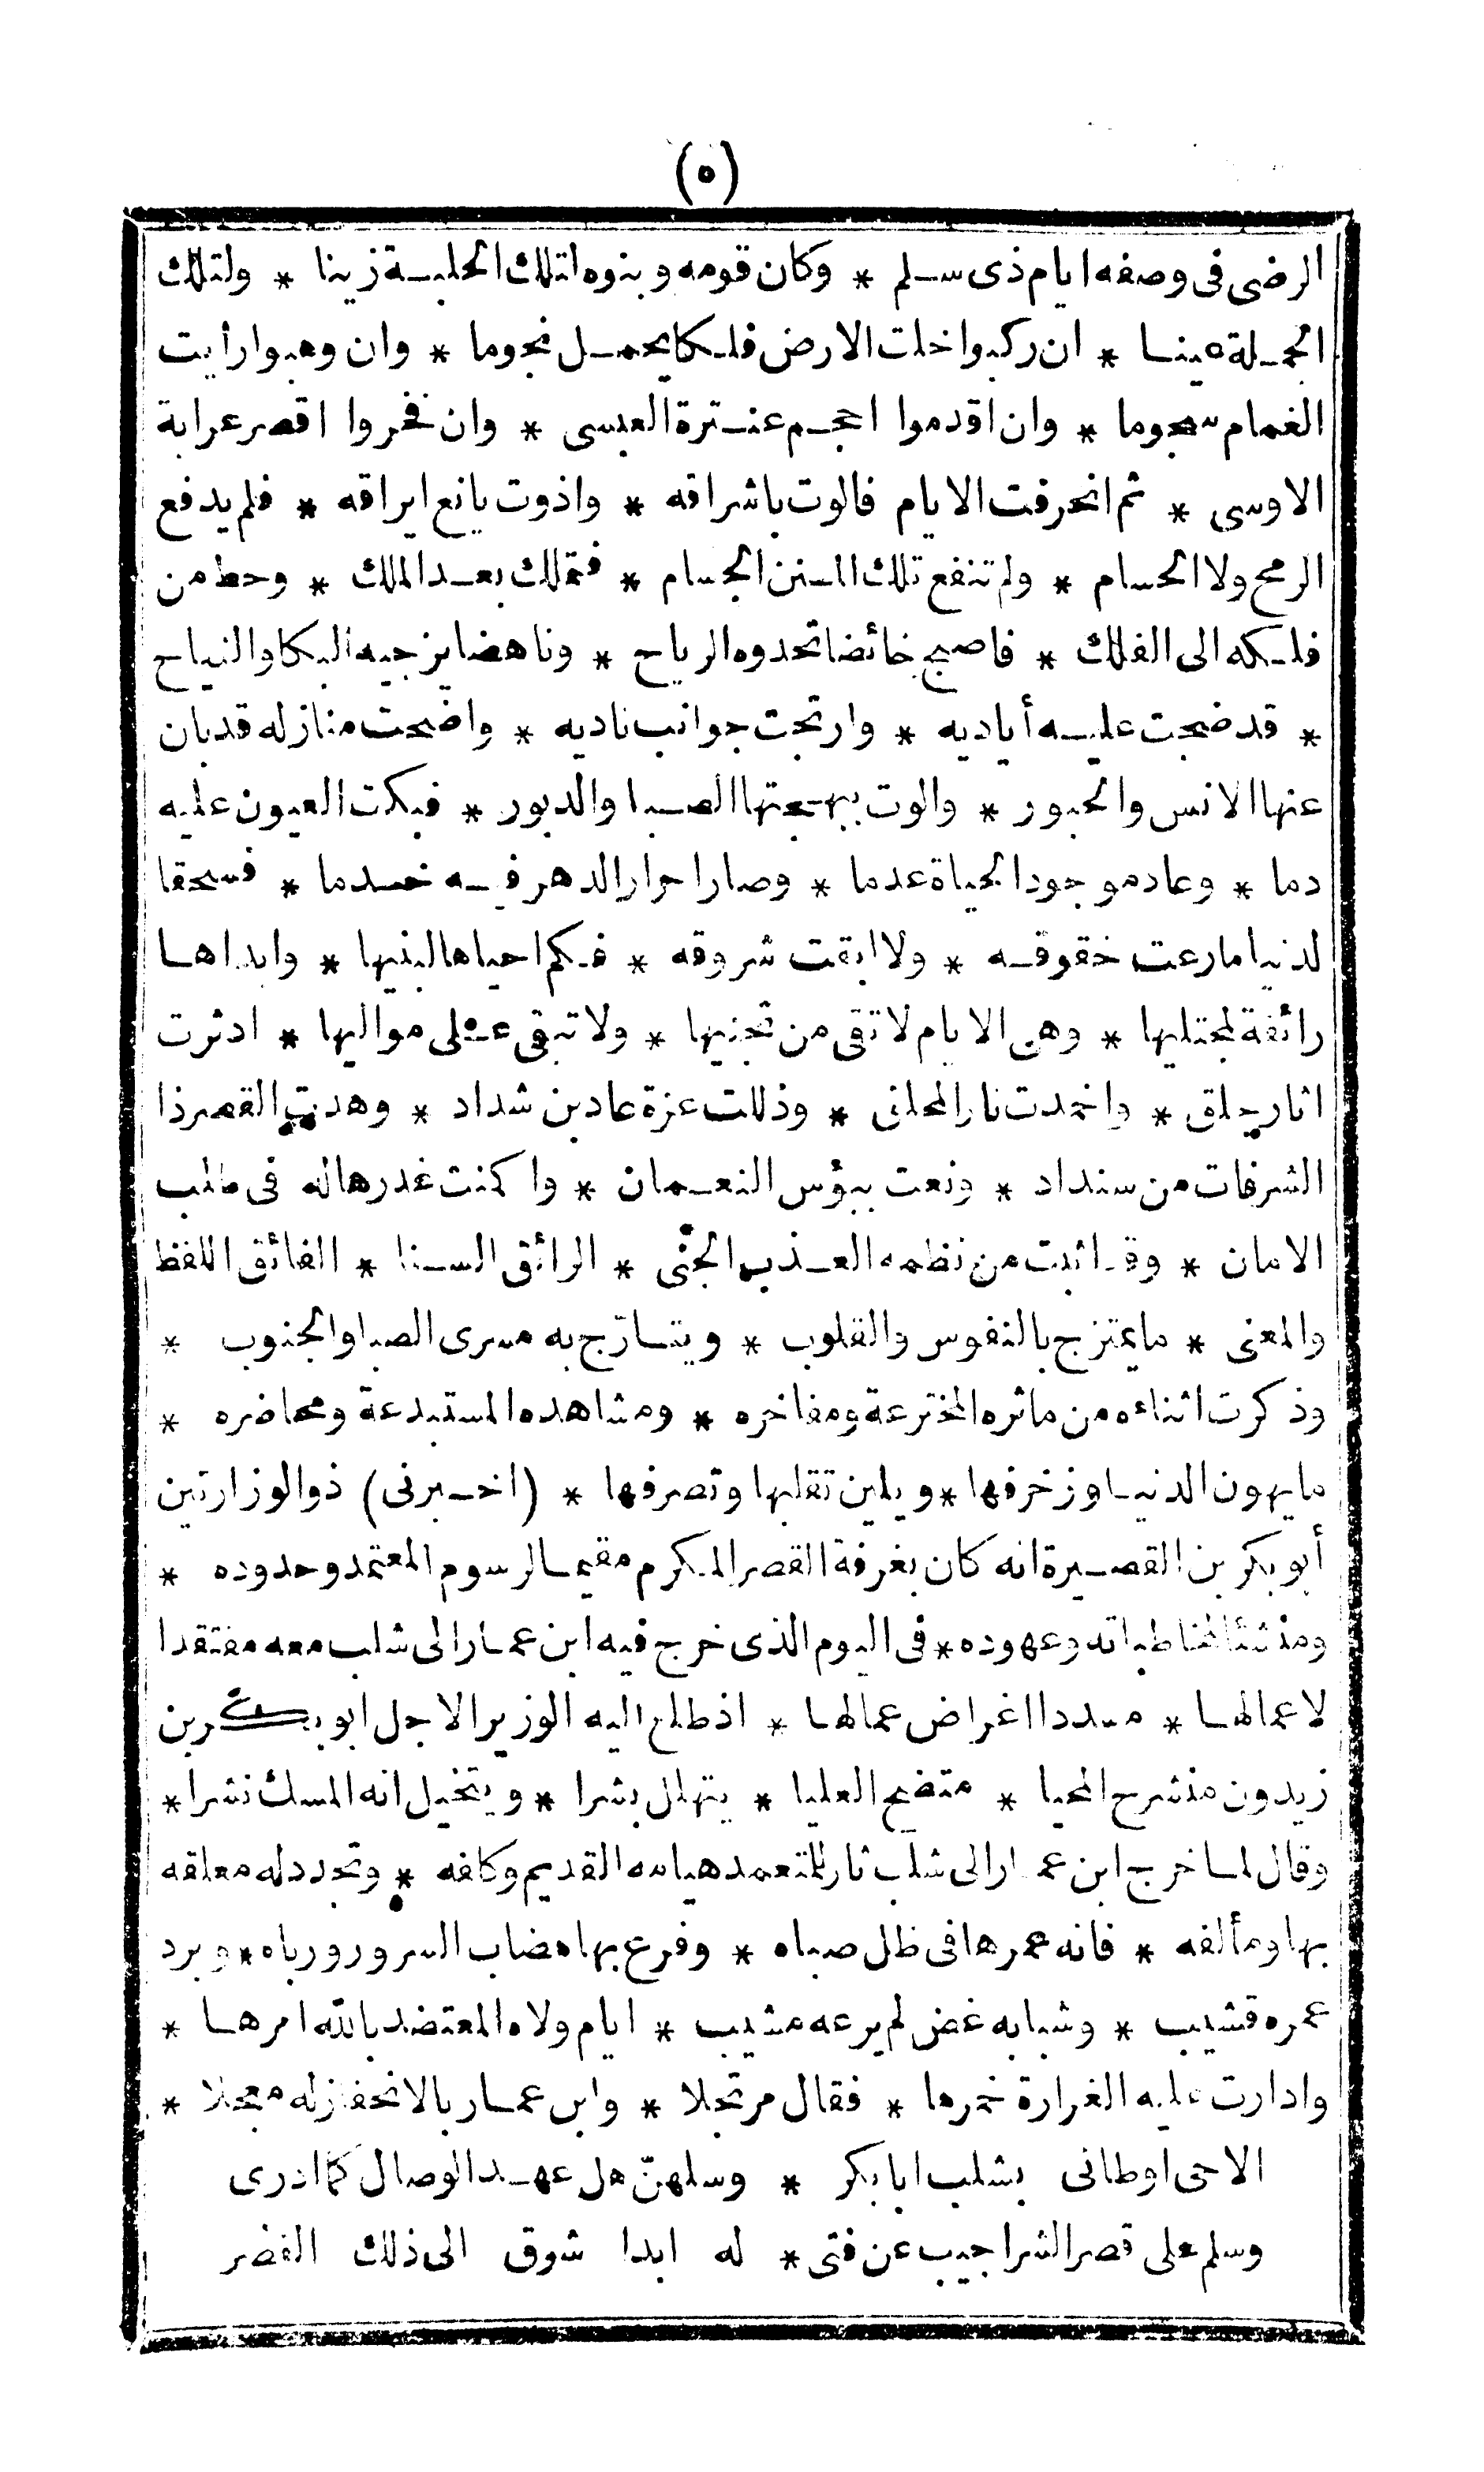 (٥)
الرضى فى وصفه ايام ذى سلم * وكان قومه وبنوه لتلك الحلبة زينا * ولتلك
الجملة عينا * ان ركبوا خلت الارض فلكا يحمل نجوما * وان وهبوا رأيت
الغمام سجوما * وان اقدموا احجم عنترة العبسى * وان فخروا اقصر عرابة
الاوسى * ثم انحرفت الايام فالوت باشراقه * واذوت يانع ايراقه * فلم يدفع
الرمح ولا الحسام * ولم تنفع تلك المنن الجسام * فتملك بعد الملك * وحط من
فلكه الى الفلك * فاصبح خائضا تحدوه الرياح * وناهضا يزجيه البكا والنياح
* قد ضجت عليه أياديه * وارتجت جوانب ناديه * واضحت منازله قد بان
عنها الانس والحبور * والوت ببهجتها الصبا والدبور * فبكت العيون عليه
دما * وعاد موجود الحياة عدما * وصار احرار الدهر فيه خدما * فسحقا
لدنيا ما رعت حقوقه * ولا ابقت شروقه * فكم احياها لبنيها * وابداها
رائقة لمجتليها * وهى الايام لا تقى من تجنيها * ولا تبقى على مواليها * ادثرت
اثار جلق * واخمدت نار المحلق * وذللت عزة عاد بن شداد * وهدت القصر ذا
الشرفات من سنداد * ونعت ببؤس النعمان * واكمنت غدرها له فى طلب
الامان * وقد اثبت من نظمه العذب الجنى * الرائق السنا * الفائق اللفظ
والمعنى * ما يمتزج بالنفوس والقلوب * ويتأرّج به مسرى الصبا والجنوب *
وذكرت اثناءه من ماثره المخترعة ومفاخره * ومشاهده المستبدعة ومحاضره *
ما يهون الدنيا وزخرفها * ويلين تقلبها وتصرفها * (اخبرنى) ذو الوزارتين
أبو بكر بن القصيرة انه كان بغرفة القصر المكرم مقيما لرسوم المعتمد وحدوده *
ومنشئا لمخاطباته وعهوده * فى اليوم الذى خرج فيه ابن عمار الى شلب معه مفتقدا
لاعمالها * مسددا اغراض عمالها * اذ طلع اليه الوزير الاجل ابو بكر بن
زيدون منشرح المحيا * متضح العليا * يتهلل بشرا * ويتخيل انه المسك نشرا *
وقال لما خرج ابن عمار الى شلب ثار للمتعمد هيامه القديم وكلفه * وتجدد له معلقه
بها ومألفه * فانه عمرها فى ظل صباه * وفرع بها هضاب السرور ورباه * وبرد
عمره قشيب * وشبابه غض لم يرعه مشيب * ايام ولاه المعتضد بالله امرها *
وادارت عليه الغرارة خمرها * فقال مرتجلا * وابن عمار بالانحفاز له معجلا *
الا حى اوطانى بشلب ابا بكر * وسلهنّ هل عهد الوصال كما ادرى
وسلم على قصر الشراجيب عن فتى * له ابدا شوق الى ذلك القصر